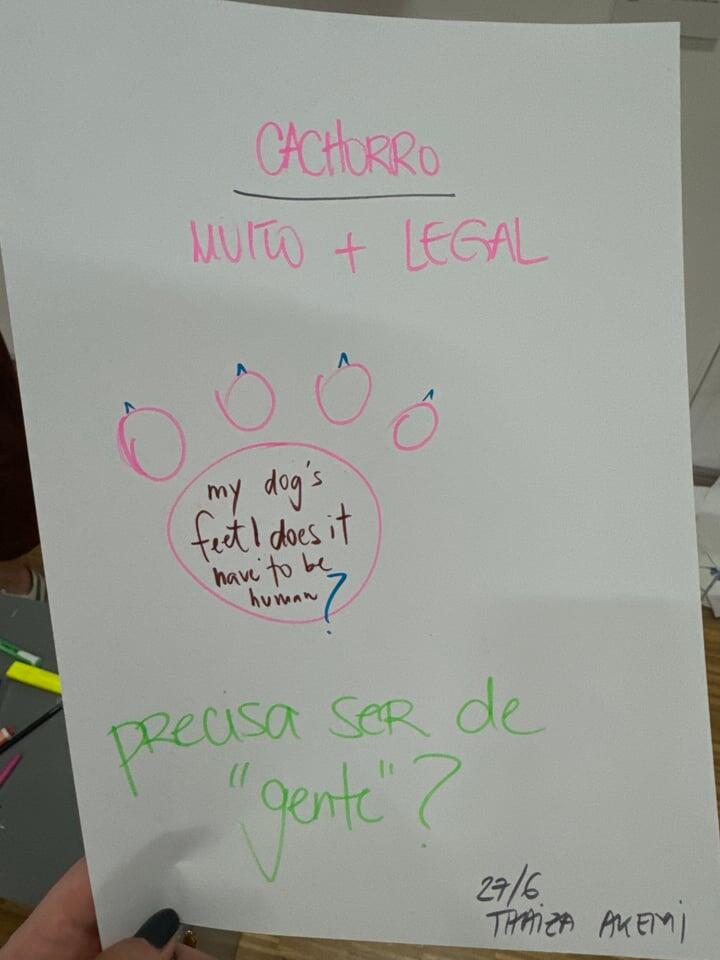 CACHORRO
MUITO + LEGAL
my dog's
feet! does it
have to be
human?
precisa ser de
"gente"?
27/6
THAIZA AKEMI